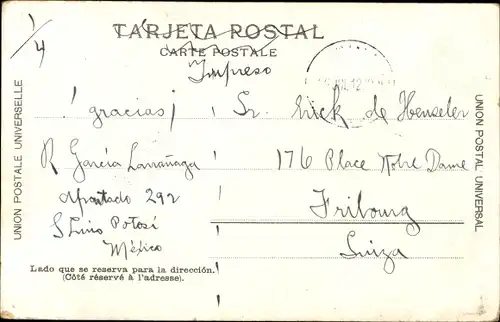 1/4
TARJETA POSTAL
CARTE POSTALE
Impreso
UNION POSTALE UNIVERSELLE
¡gracias!
R García Larrañaga
Apartado 292
S Luis Potosí
México
Sr. Erick de Henseler
176 Place Notre Dame
Fribourg
Suiza
UNION POSTAL UNIVERSAL
Lado que se reserva para la dirección.
(Côté réservé à l'adresse).